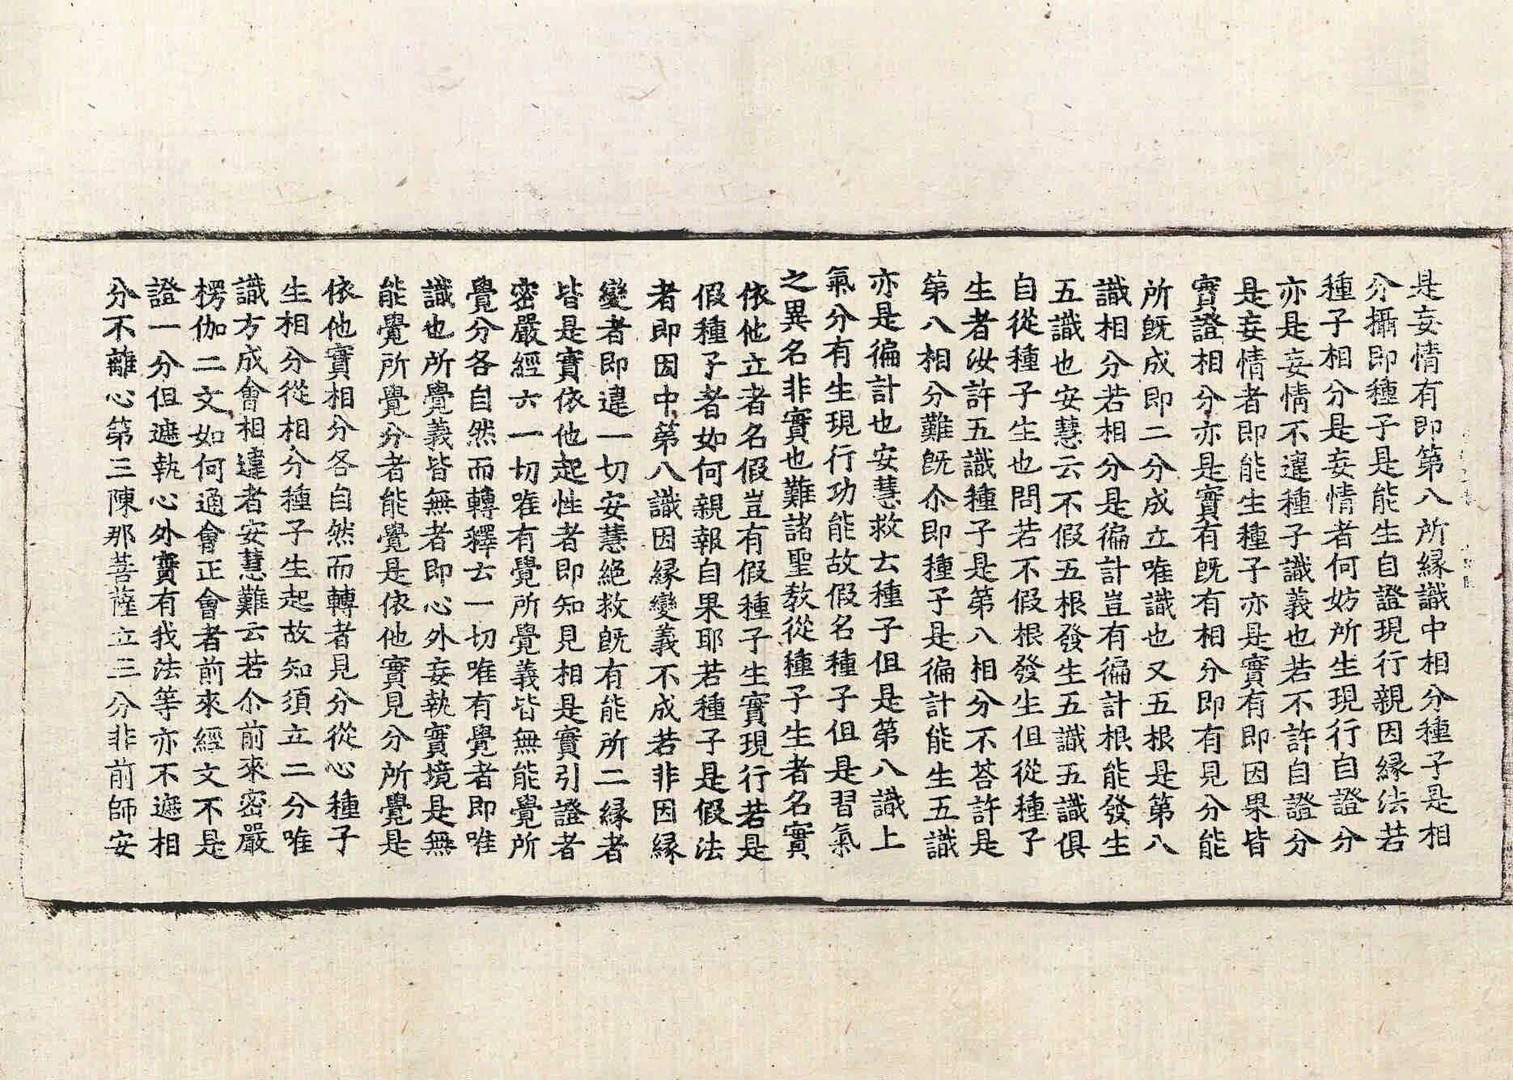 是妄情有即第八所緣識中相分種子是相
分攝即種子是能生自證現行親因緣法若
種子相分是妄情者何妨所生現行自證分
亦是妄情不違種子識義也若不許自證分
是妄情者即能生種子亦是實有即因果皆
實證相分亦是實有既有相分即有見分能
所既成即二分成立唯識也又五根是第八
識相分若相分是徧計豈有徧計根能發生
五識也安慧云不假五根發生五識五識俱
自從種子生也問若不假根發生但從種子
生者汝許五識種子是第八相分不荅許是
第八相分難既尒即種子是徧計能生五識
亦是徧計也安慧救云種子但是第八識上
氣分有生現行功能故假名種子但是習氣
之異名非實也難諸聖教從種子生者名實
依他立者名假豈有假種子生實現行若是
假種子者如何親報自果耶若種子是假法
者即因中第八識因緣變義不成若非因緣
變者即違一切安慧絕救既有能所二緣者
皆是實依他起性者即知見相是實引證者
密嚴經六一切唯有覺所覺義皆無能覺所
覺分各自然而轉釋云一切唯有覺者即唯
識也所覺義皆無者即心外妄執實境是無
能覺所覺分者能覺是依他實見分所覺是
依他實相分各自然而轉者見分從心種子
生相分從相分種子生起故知須立二分唯
識方成會相違者安慧難云若尒前來密嚴
楞伽二文如何通會正會者前來經文不是
證一分但遮執心外實有我法等亦不遮相
分不離心第三陳那菩薩立三分非前師安